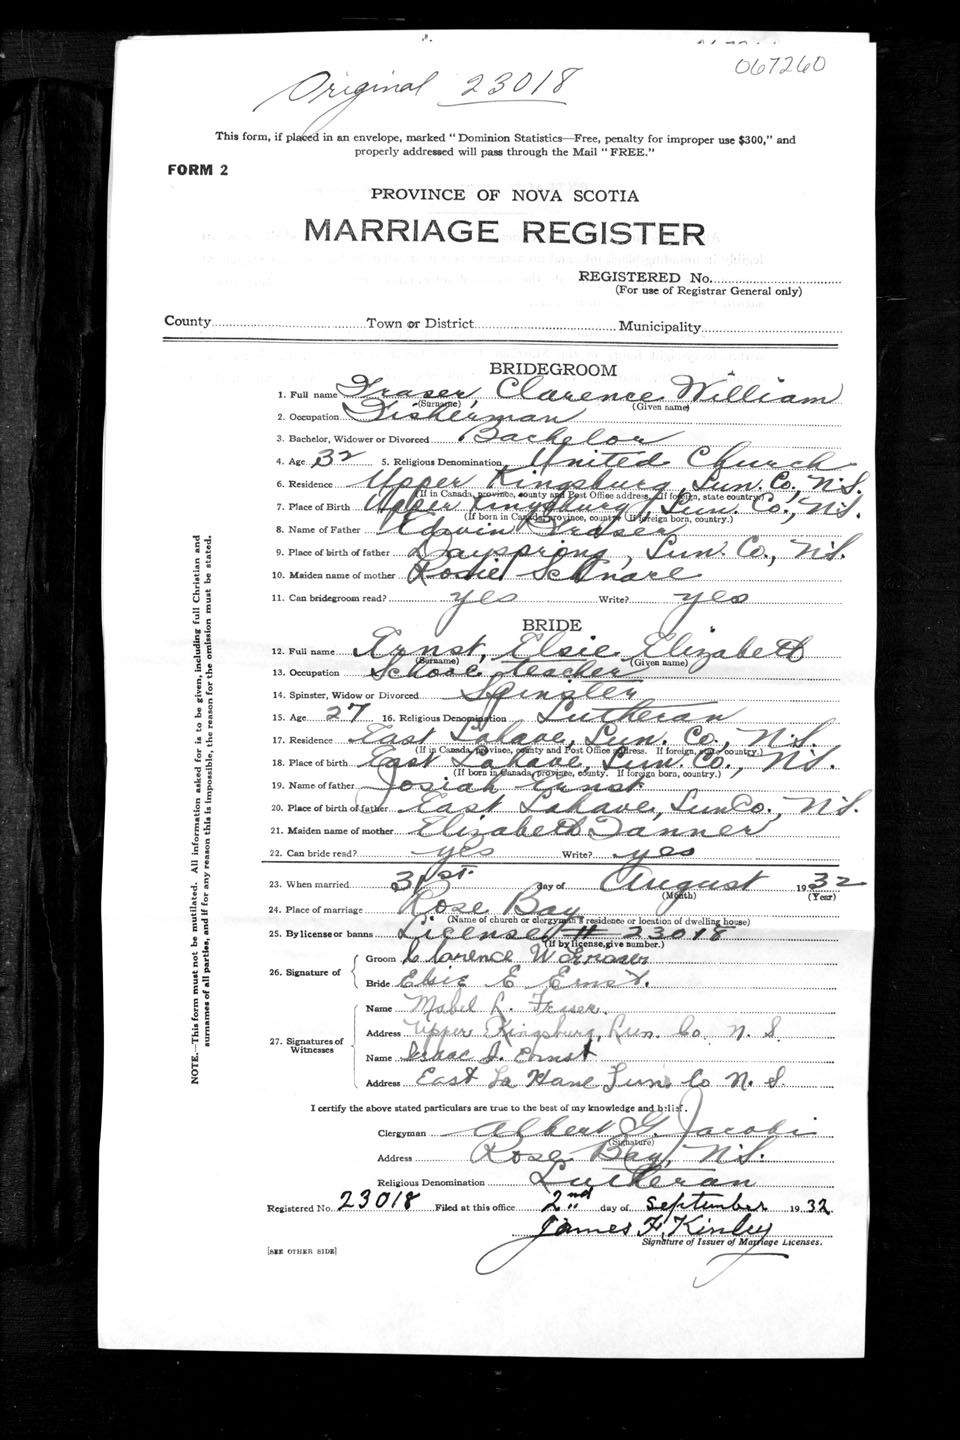 067260
Original 23018
This form, if placed in an envelope, marked " Dominion Statistics—Free, penalty for improper use $300," and
properly addressed will pass through the Mail " FREE."
FORM 2
PROVINCE OF NOVA SCOTIA
MARRIAGE REGISTER
REGISTERED No.
(For use of Registrar General only)
County Town or District Municipality
BRIDEGROOM
1. Full name Fraser, Clarence William
(Surname) (Given name)
2. Occupation Fisherman
3. Bachelor, Widower or Divorced Bachelor
4. Age 32 5. Religious Denomination United Church
6. Residence Upper Kingsburg, Lun. Co., N.S.
(If in Canada, province, county and Post Office address. If foreign, state country.)
7. Place of Birth Upper Kingsburg, Lun. Co., N.S.
(If born in Canada, province, county. If foreign born, country.)
8. Name of Father Edwin Fraser
9. Place of birth of father Dayspring, Lun. Co., N.S.
10. Maiden name of mother Rosie Schnare
11. Can bridegroom read? yes Write? yes
BRIDE
12. Full name Ernst, Elsie Elizabeth
(Surname) (Given name)
13. Occupation School teacher
14. Spinster, Widow or Divorced Spinster
15. Age 27 16. Religious Denomination Lutheran
17. Residence East Lahave, Lun. Co., N.S.
(If in Canada, province, county and Post Office address. If foreign, state country.)
18. Place of birth East Lahave, Lun. Co., N.S.
(If born in Canada, province, county. If foreign born, country.)
19. Name of father Josiah Ernst
20. Place of birth of father East Lahave, Lun Co., N.S.
21. Maiden name of mother Elizabeth Tanner
22. Can bride read? yes Write? yes
23. When married 31st. day of August 1932
(Month) (Year)
24. Place of marriage Rose Bay
(Name of church or clergyman's residence or location of dwelling house)
25. By license or banns License # 23018
(If by license, give number.)
26. Signature of Groom Clarence W Fraser
Bride Elsie E Ernst.
27. Signatures of Witnesses
Name Mabel R. Fraser.
Address Upper Kingsburg, Lun. Co. N. S
Name Isaac J. Ernst
Address East La Have Lun. Co N. S.
I certify the above stated particulars are true to the best of my knowledge and belief.
Clergyman Albert G. Jacobi
(Signature)
Address Rose Bay, N.S.
Religious Denomination Lutheran
Registered No. 23018 Filed at this office 2nd day of September 1932.
James F. Kinley
Signature of Issuer of Marriage Licenses.
[SEE OTHER SIDE]
NOTE.—This form must not be mutilated. All information asked for is to be given, including full Christian and
surnames of all parties, and if for any reason this is impossible, the reason for the omission must be stated.